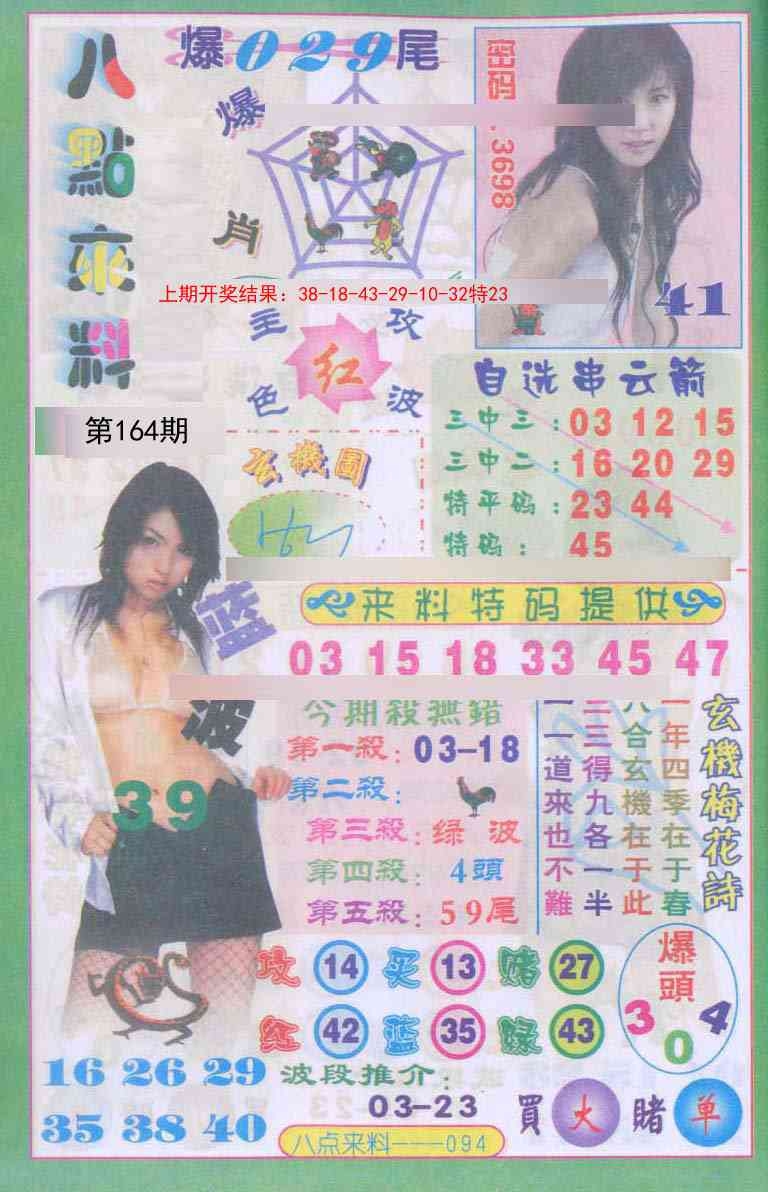 八點來料
爆029尾
爆肖
密码.3698
41
上期开奖结果：38-18-43-29-10-32特23
主攻
红
色波
第164期
玄機圖
自选串云箭
三中三：03 12 15
三中二：16 20 29
特平码：23 44
特码：45
来料特码提供
03 15 18 33 45 47
蓝波
39
今期殺無錯
第一殺：03-18
第二殺：
第三殺：绿波
第四殺：4頭
第五殺：59尾
玄機梅花詩
一年四季在于春
八合玄機在于此
二三得九各一半
一一道來也不難
攻 14 买 13 赌 27
红 42 蓝 35 绿 43
爆頭
3 0 4
16 26 29
35 38 40
波段推介：
03-23
買大賭单
八点来料---094